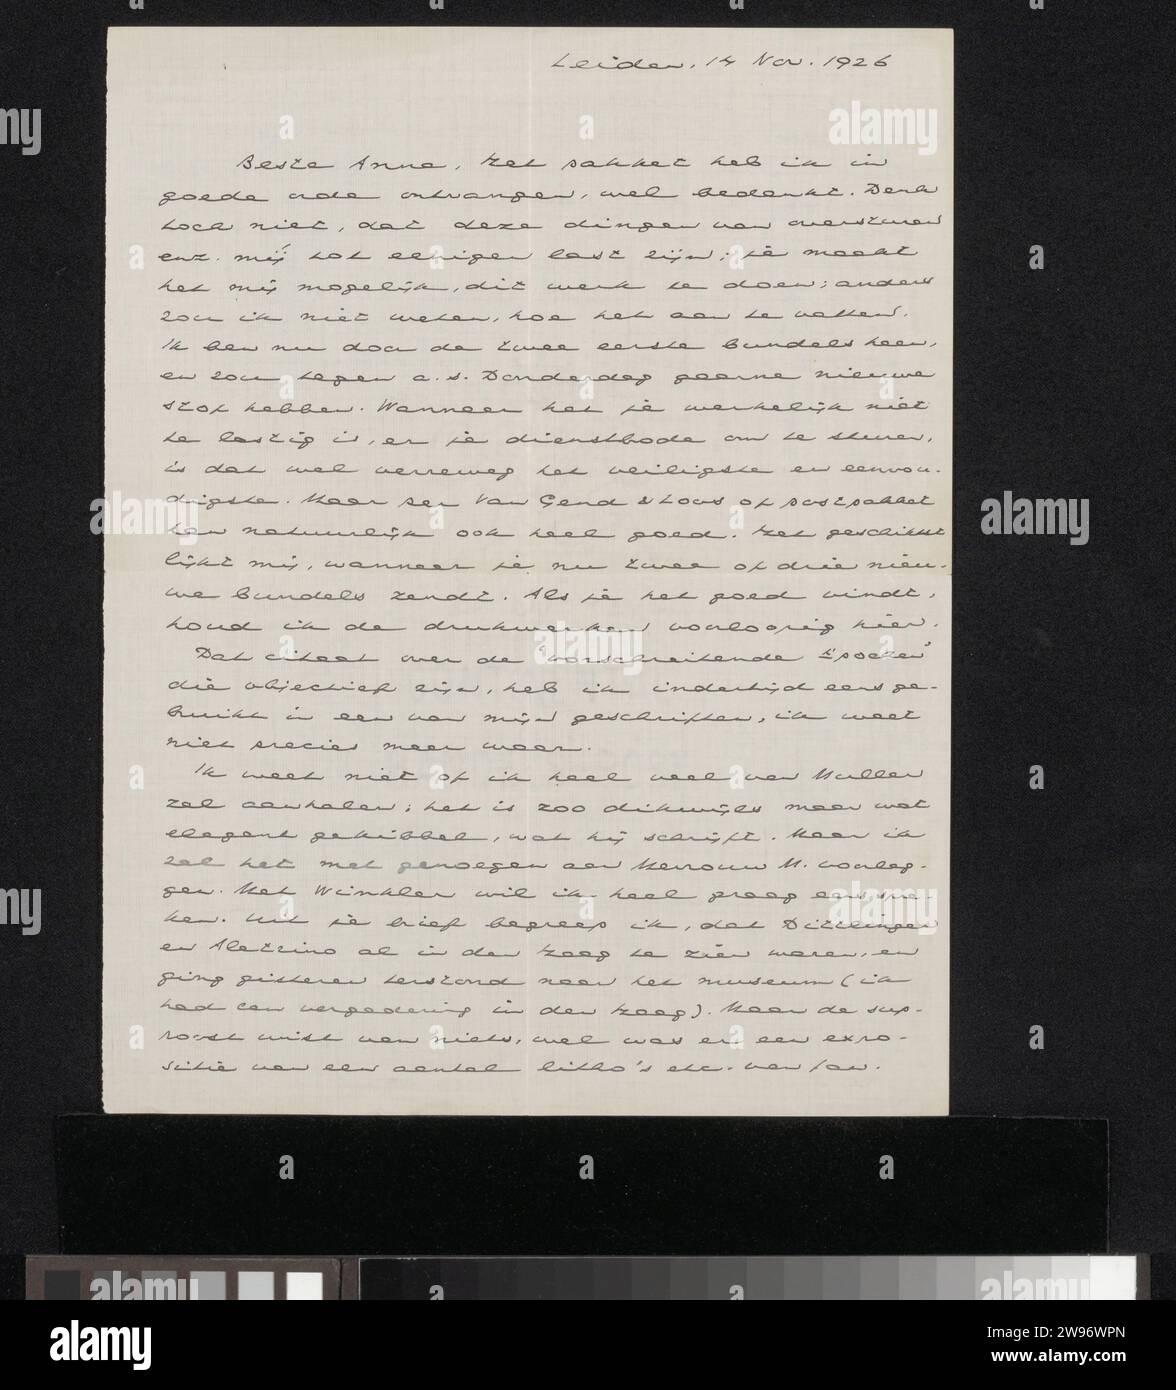 Leiden, 14 Nov. 1926
Beste Anna, Het pakket heb ik in
goede orde ontvangen, wel bedankt. Denk
toch niet, dat deze dingen van oversturen
enz. mij tot eenigen last zijn; je maakt
het mij mogelijk, dit werk te doen; anders
zou ik niet weten, hoe het aan te vatten.
Ik ben nu door de twee eerste bundels heen,
en zou tegen a.s. Donderdag gaarne nieuwe
stof hebben. Wanneer het je werkelijk niet
te lastig is, er je dienstbode om te sturen,
is dat wel verreweg het veiligste en eenvou-
digste. Maar per Van Gend & Loos of postpakket
kan natuurlijk ook heel goed. Het geschiktst
lijkt mij, wanneer je nu twee of drie nieu-
we bundels zendt. Als je het goed vindt,
houd ik de drukwerken voorloopig hier.
Dat citaat over de "vorschreitende Epochen"
die objectief zijn, heb ik indertijd eens ge-
bruikt in een van mijn geschriften, ik weet
niet precies meer waar.
Ik weet niet of ik heel veel van Muller
zal aanhalen; het is zoo dikwijls maar wat
elegant gekibbel, wat hij schrijft. Maar ik
zal het met genoegen aan Mevrouw M. voorleg-
gen. Met Winkler wil ik heel graag eens spre-
ken. Uit je brief begreep ik, dat Dittlinger
en Aletrino al in den Haag te zien waren, en
ging gisteren terstond naar het museum (ik
had een vergadering in den Haag). Maar de sup-
poost wist van niets, wel was er een expo-
sitie van een aantal litho's etc. van
a
alamy
alamy
Image ID: 2W96WPN
www.alamy.com